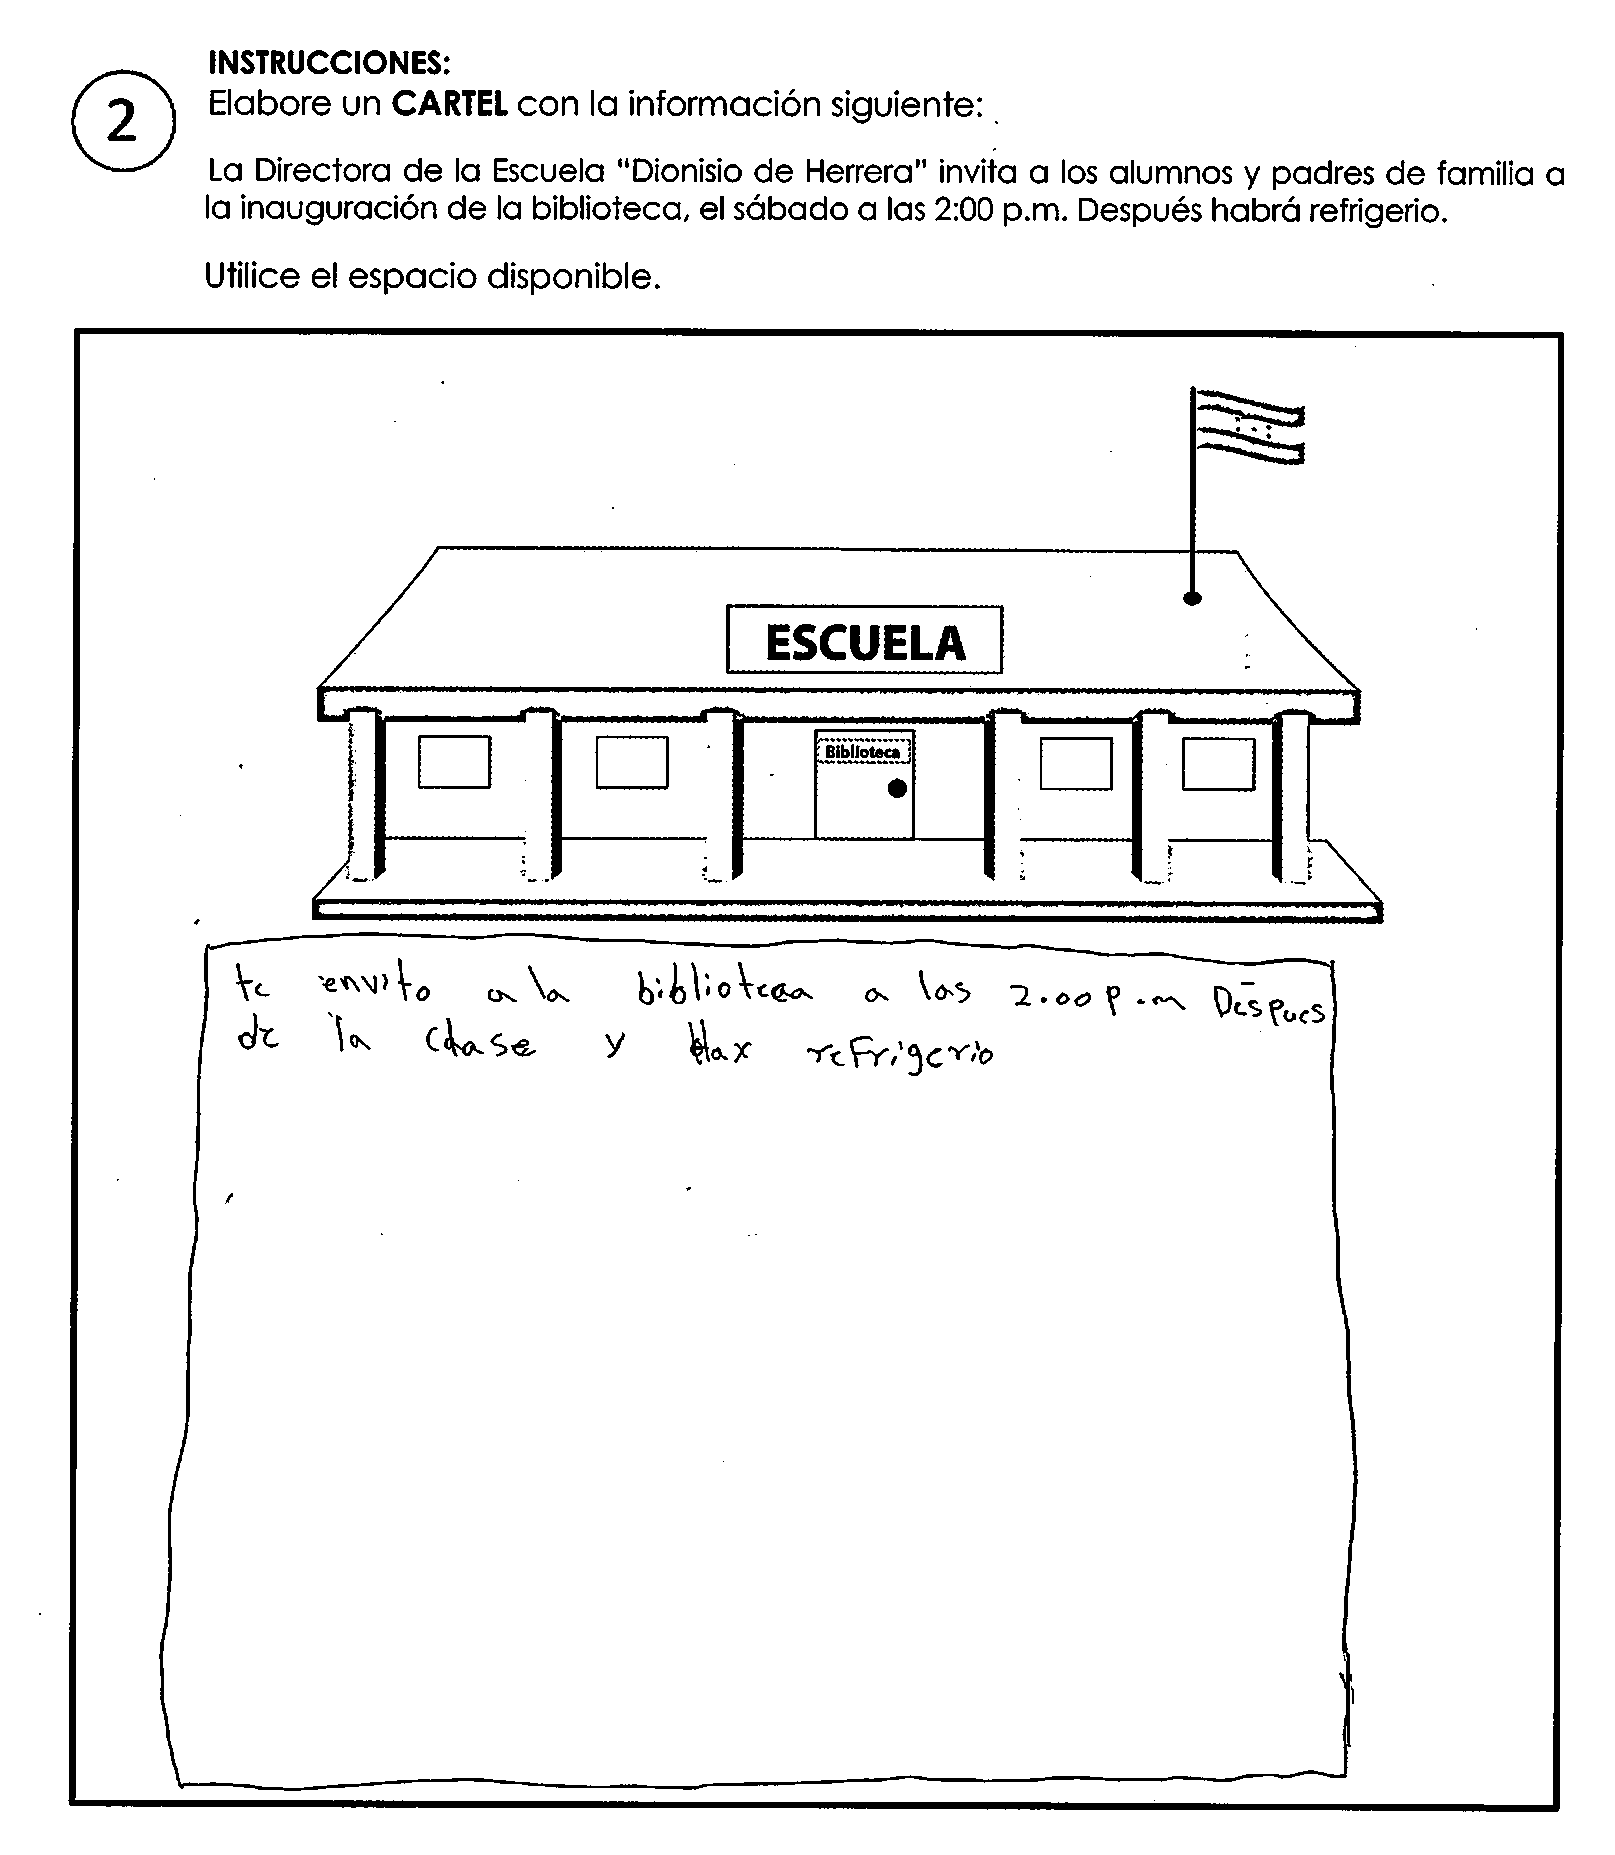 INSTRUCCIONES:
2
Elabore un CARTEL con la información siguiente:
La Directora de la Escuela "Dionisio de Herrera" invita a los alumnos y padres de familia a
la inauguración de la biblioteca, el sábado a las 2:00 p.m. Después habrá refrigerio.
Utilice el espacio disponible.
ESCUELA
Biblioteca
te envito a la biblioteca a las 2.00 p.m Despues
de la clase y Hax refrigerio